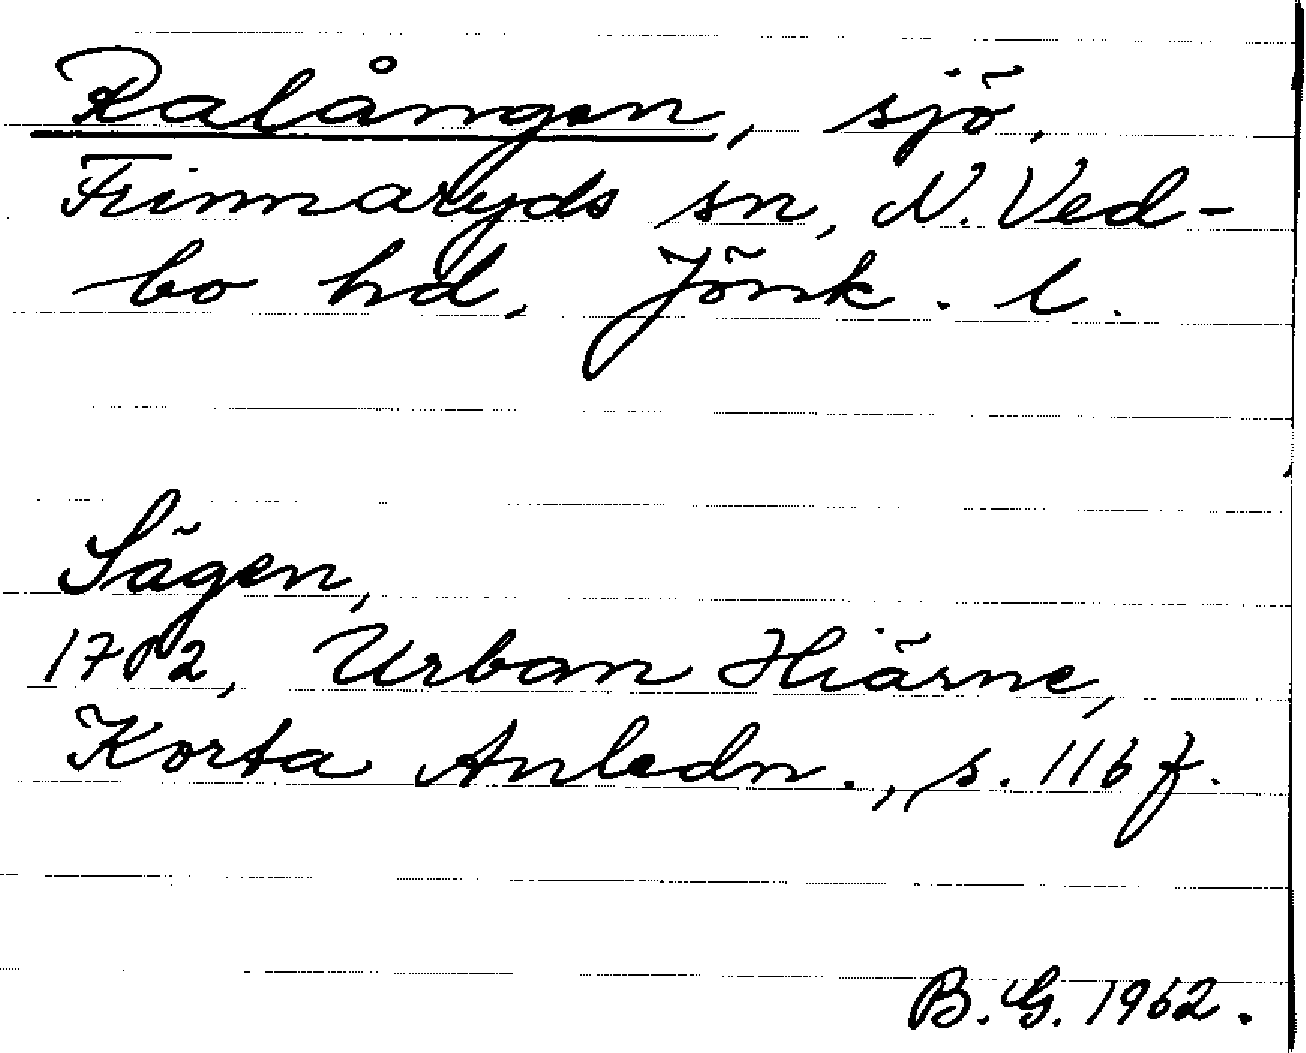 Ralången, sjö.
Finnaryds sn, N. Ved-
bo hd, Jönk. l.
Sägen,
1702, Urban Hiärne,
Korta Anledn., s. 116 f.
B. G. 1962.